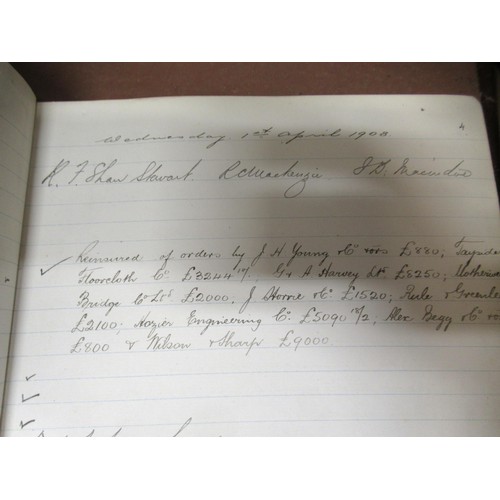 4
Wednesday 1st April 1908
R. F. Shaw Stewart. R C Mackenzie J. G.
Reinsured of orders by J. H Young &Co £880; Tayside
Floorcloth Co. £3244 G & A Harvey Ltd. £8250; Motherwell
Bridge Co Ltd £2000; J Horne &Co. £1520; Rule &
£2100; Hozier Engineering Co. £5090 Alex Begg &Co
£800 & Wilson &Sharp £9000